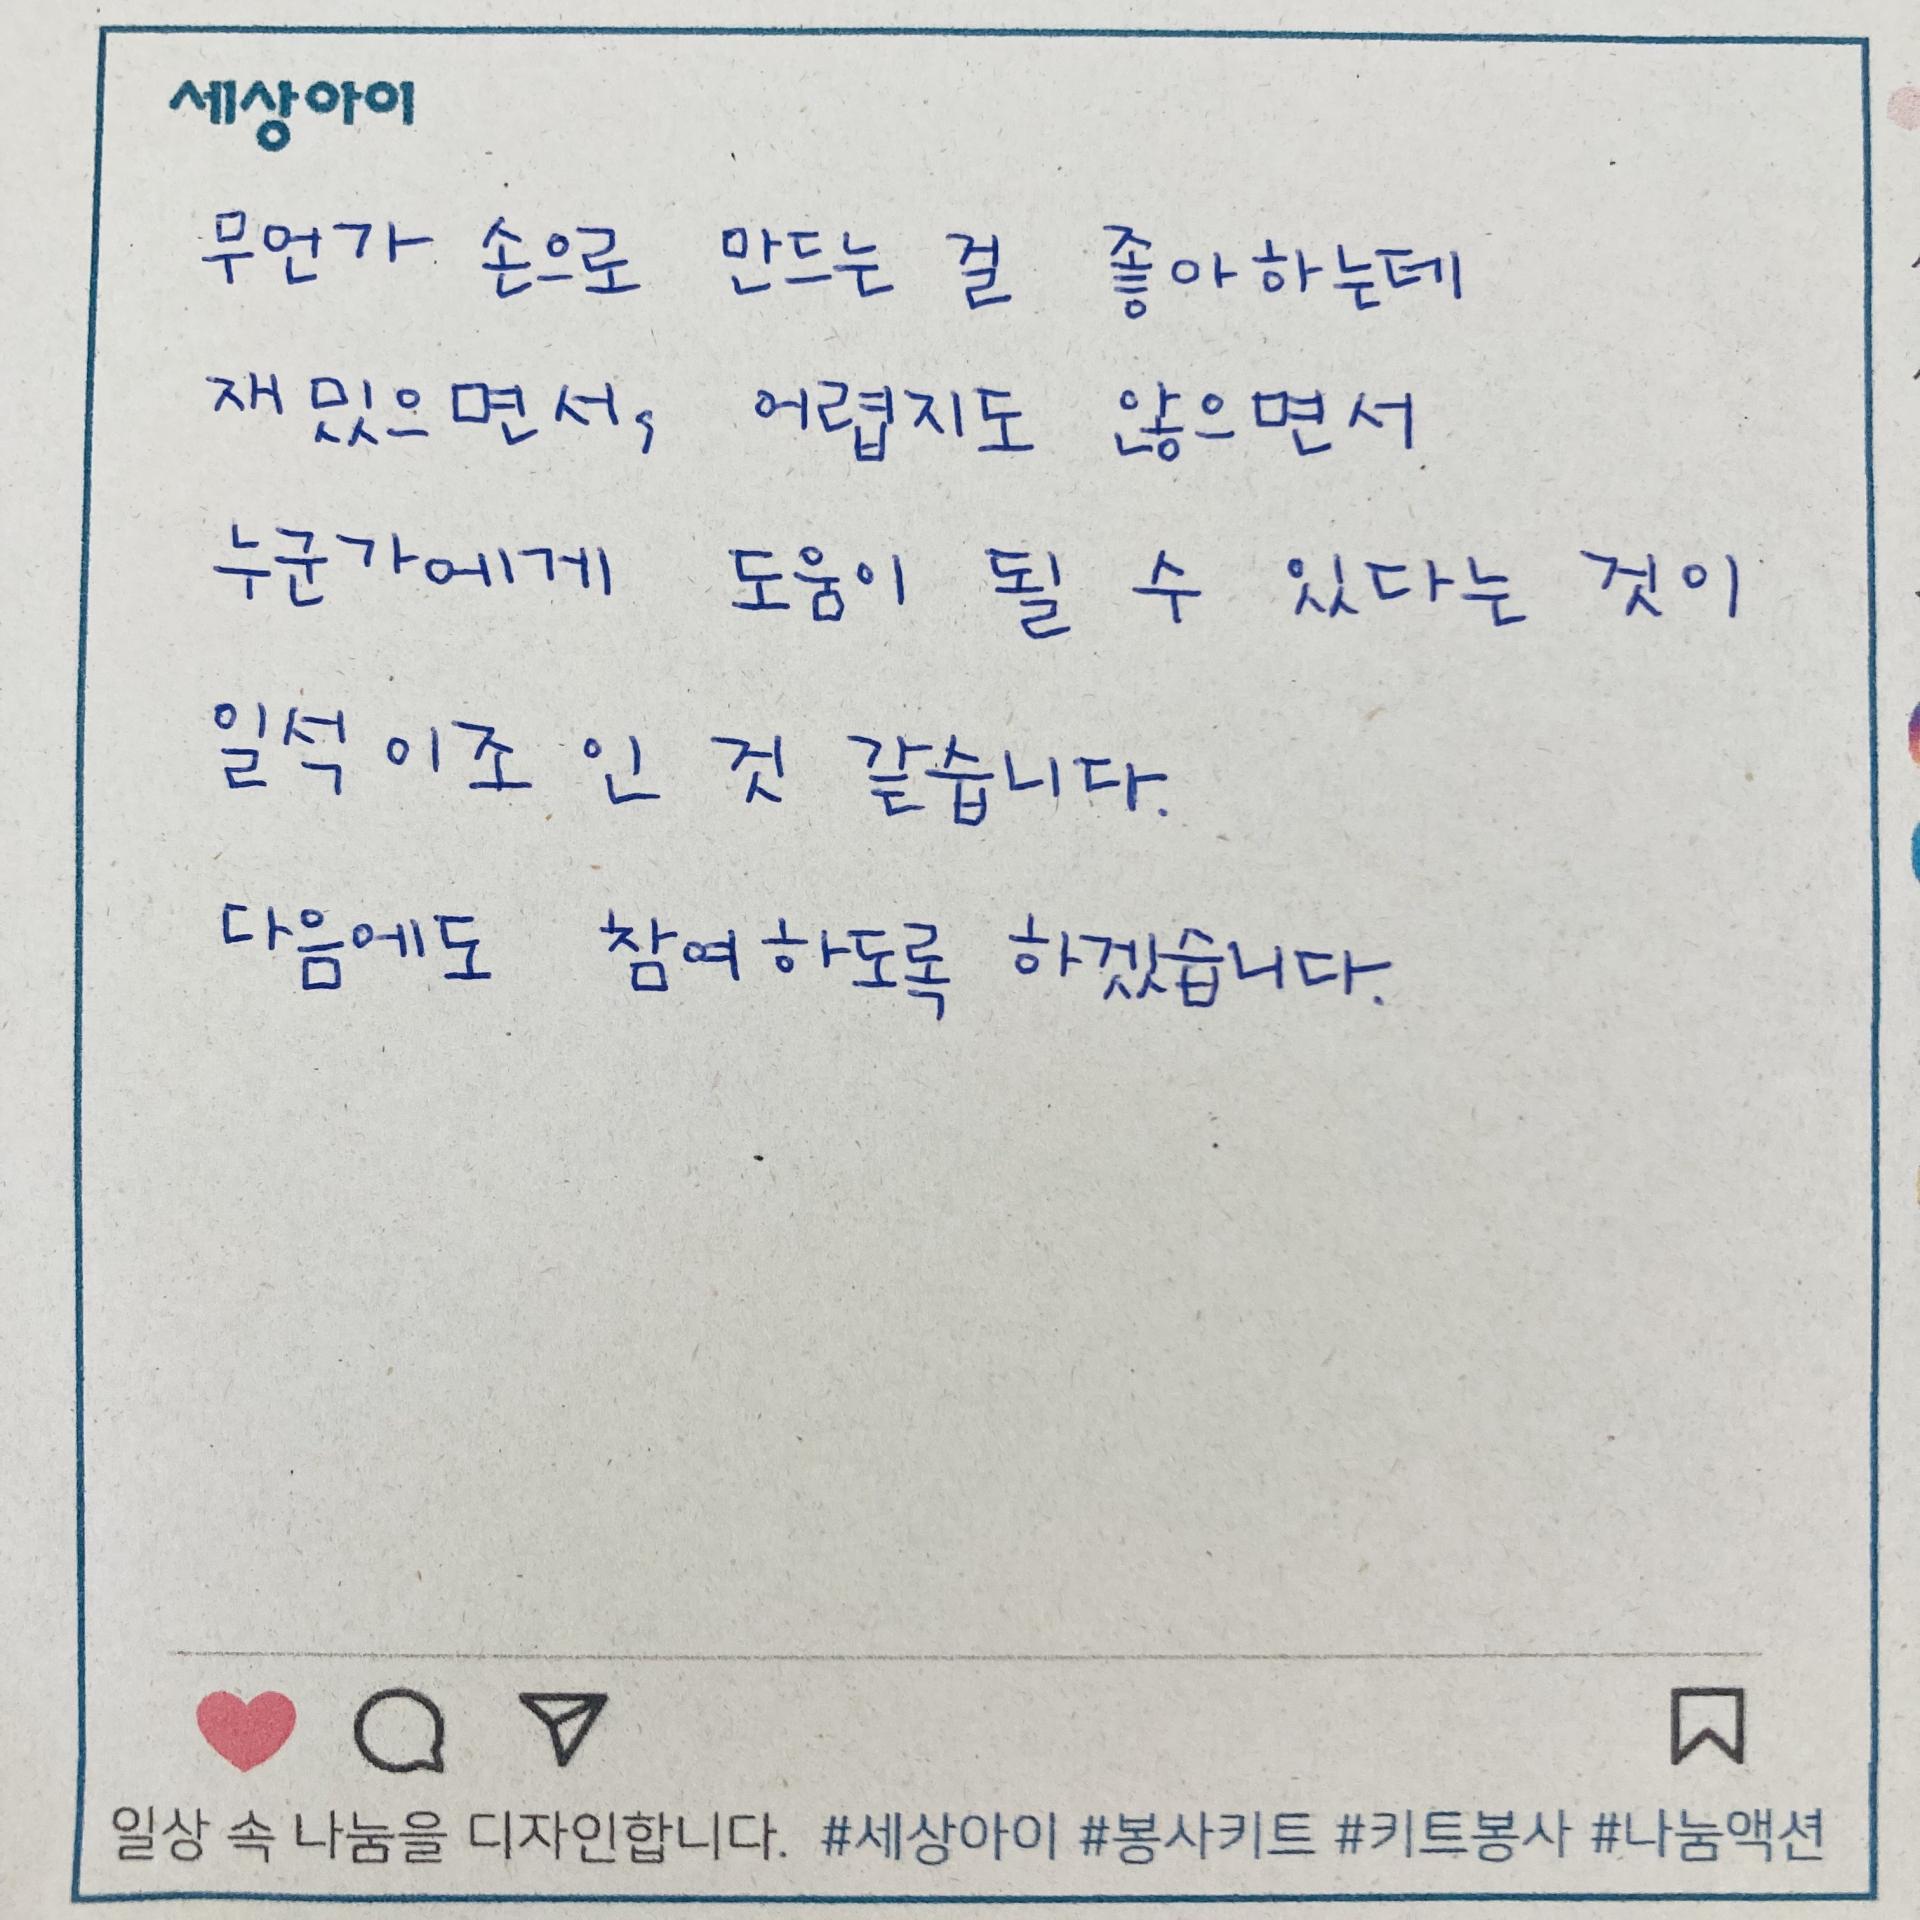 세상아이
무언가 손으로 만드는 걸 좋아하는데
재밌으면서, 어렵지도 않으면서
누군가에게 도움이 될 수 있다는 것이
일석이조 인 것 같습니다.
다음에도 참여하도록 하겠습니다.
일상 속 나눔을 디자인합니다. #세상아이 #봉사키트 #키트봉사 #나눔액션